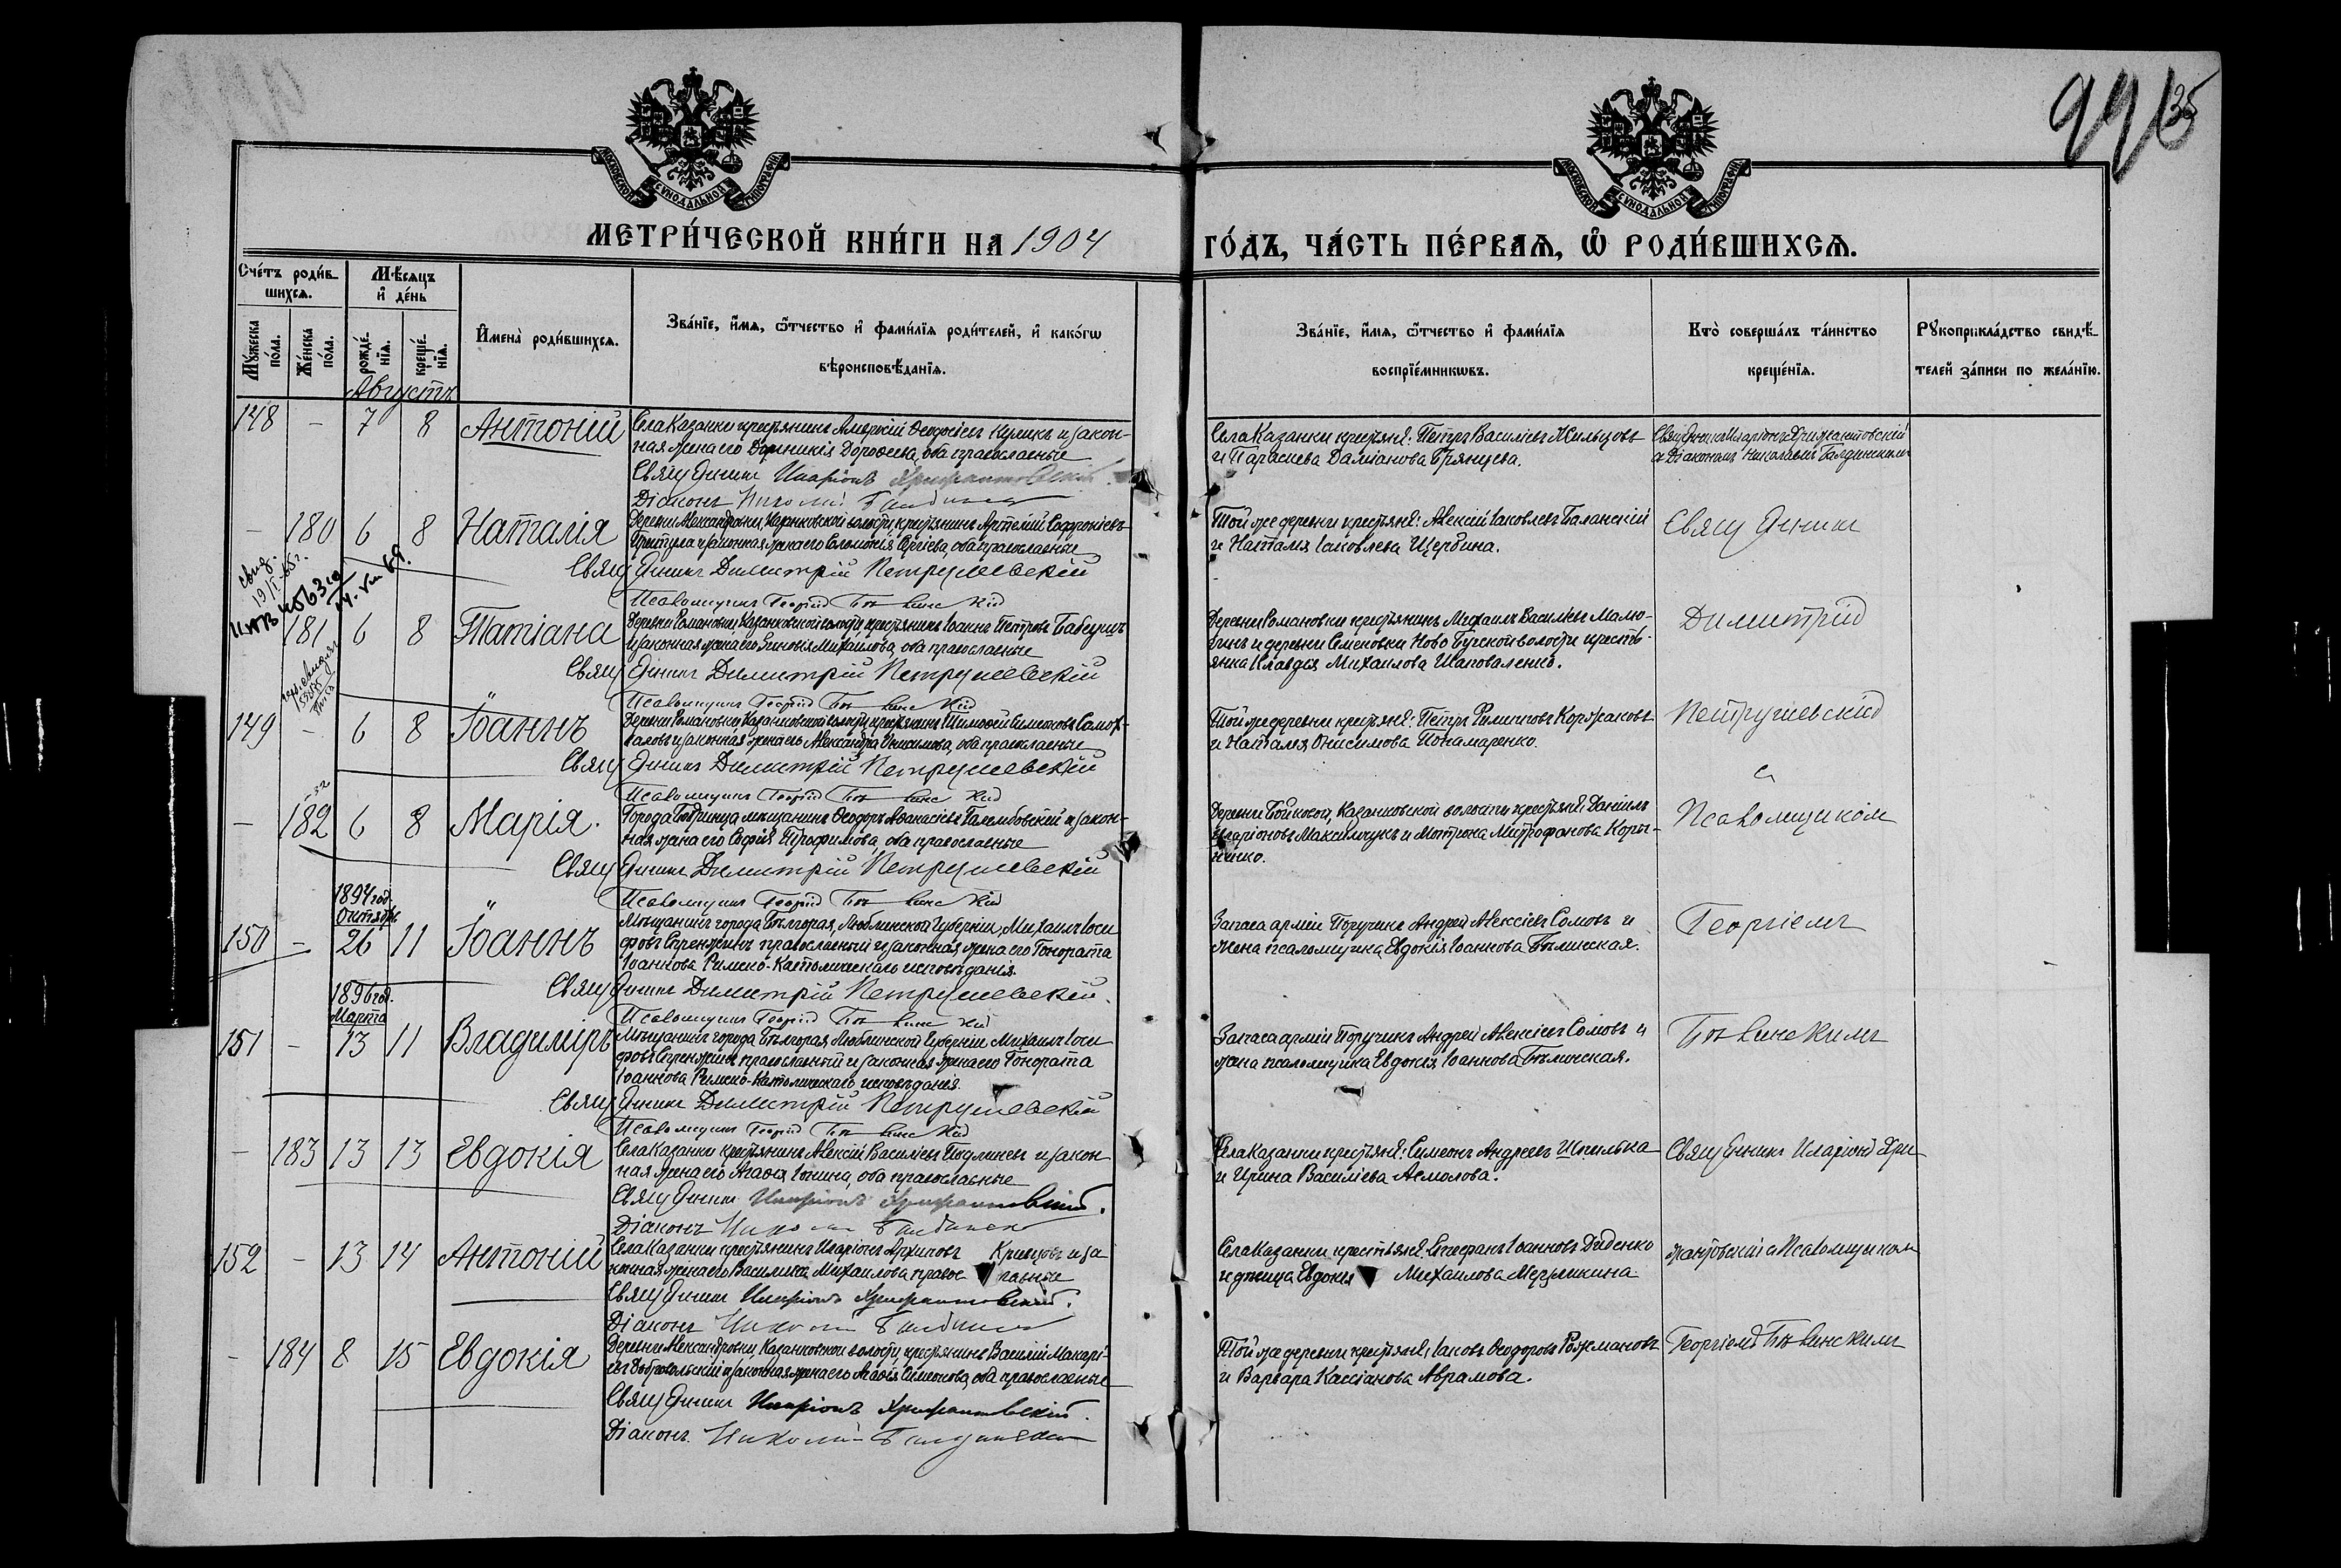 99 135
МОСКОВСКОЙ СѴНОДАЛЬНОЙ ТИПОГРАФІИ
МОСКОВСКОЙ СѴНОДАЛЬНОЙ ТИПОГРАФІИ
МЕТРИ́ЧЕСКОЙ КНИ́ГИ НА 1904 ГО́ДЪ, ЧА́СТЬ ПЕ́РВАѦ, Ѡ҆ РОДИ́ВШИХСѦ.
Сче́тъ роди́в-
шихсѧ.
Мѣ́сѧцъ
и҆ де́нь
Мꙋ́жеска
по́ла.
Же́нска
по́ла.
рожде́-
нїѧ.
креще́-
нїѧ.
И҆мена̀ роди́вшихсѧ.
Зва́нїе, и҆́мѧ, ѻ҆́тчество и҆ фами́лїѧ роди́телей, и҆ како́гѡ
вѣроисповѣ́данїѧ.
Зва́нїе, и҆́мѧ, ѻ҆́тчество и҆ фами́лїѧ
воспрїе́мникѡвъ.
Кто̀ соверша́лъ та́инство
креще́нїѧ.
Рꙋкоприкла́дство свидѣ́-
телей за́писи по жела́нїю.
Августъ
148 - 7 8 Антоній
Села Казанки крестьянинъ Ѳеодосіевъ Куликъ и закон-
ная жена его Домникія Дороѳеева, оба православные
Священникъ Иларіонъ Хрисантовскій
Діаконъ Николай
Села Казанки крестьяне: Петръ Василіевъ Жильцовъ
и Параскева Даміанова Брянцева.
Священникъ Иларіонъ Хрисантовскій
съ Діакономъ Николаемъ
- 180 6 8 Наталія
Деревни Александровки, Казанковской волости, крестьянинъ Артемій Софроніевъ
Притула и законная жена его Соломонія Сергіева, оба православные
Священникъ Димитрій Петрушевскій
Псаломщикъ Георгій Бѣлинскій
Той же деревни крестьяне: Алексій Іаковлевъ Баланскій
и Наталія Іаковлева Щербина.
Священникъ
свид.
19/I-65г.
- 181 6 8 Татіана
Деревни Романовки Казанковской волости крестьянинъ Іоаннъ Петровъ Бабецкъ
и законная жена его Зиновія Михайлова, оба православные
Священникъ Димитрій Петрушевскій
Псаломщикъ Георгій Бѣлинскій
Деревни Романовки крестьянинъ Михаилъ Василіевъ Малю-
гинъ и деревни Семеновки Ново Бугской волости кресть-
янка Клавдія Михаилова Шаповаленко.
Димитрій
149 - 6 8 Іоаннъ
Деревни Романовки Казанковской волости крестьянинъ Тимоѳей Симеоновъ
и законная жена его Александра Онисимова, оба православные
Священникъ Димитрій Петрушевскій
Псаломщикъ Георгій Бѣлинскій
Той же деревни крестьяне: Петръ Филипповъ Коржаковъ
и Наталія Онисимова Понамаренко.
Петрушевскій
съ
- 182 6 8 Марія.
Города Бобринца мѣщанинъ Ѳеодоръ Аѳанасіевъ Галембовскій и закон-
ная жена его Софія Трофимова, оба православные
Священникъ Димитрій Петрушевскій
Псаломщикъ Георгій Бѣлинскій
Деревни Бойкова, Казанковской волости крестьяне, Даніилъ
Иларіоновъ Максимчукъ и Мотрона Митрофанова Корн-
іенко.
Псаломщикомъ
1894 год
Октябрь
150 - 26 11 Іоаннъ
Мѣщанинъ города Бѣлгорая, Люблинской Губерніи, Михаилъ Іоси-
фовъ Стренжинъ православный и законная жена его Гонората
Іоаннова Римско-Католическаго исповѣданія.
Священникъ Димитрій Петрушевскій.
Псаломщикъ Георгій Бѣлинскій
Запаса арміи Поручикъ Андрей Алексіевъ Сомовъ и
жена псаломщика Евдокія Іоаннова Бѣлинская.
Георгіемъ
1896 год.
Марта
151 - 13 11 Владиміръ
Мѣщанинъ города Бѣлгорая Люблинской Губерніи Михаилъ Іоси-
фовъ Стренжинъ православный и законная жена его Гонората
Іоаннова Римско-Католическаго исповѣданія.
Священникъ Димитрій Петрушевскій
Псаломщикъ Георгій Бѣлинскій
Запаса арміи Поручикъ Андрей Алексіевъ Сомовъ и
жена псаломщика Евдокія Іоаннова Бѣлинская.
Бѣлинскимъ
- 183 13 13 Евдокія
Села Казанки крестьянинъ Алексій Василіевъ Подлиневъ и закон-
ная жена его Агаѳія Іонина, оба православные
Священникъ Иларіонъ Хрисантовскій.
Діаконъ Николай
Села Казанки крестьяне: Симеонъ Андреевъ Шпилька
и Ирина Василіева Асмолова.
Священникъ Иларіонъ Хри-
152 - 13 14 Антоній
Села Казанки крестьянинъ Иларіонъ Архиповъ Кривцовъ и за-
конная жена его Василиса Михаилова православные
Священникъ Иларіонъ Хрисантовскій.
Діаконъ Николай
Села Казанки крестьяне Стефанъ Іоанновъ Диденко
и дѣвица Евдокія Михаилова Мерзликина
сантовскій съ Псаломщикомъ
- 184 8 15 Евдокія
Деревни Александровки, Казанковской волости, крестьянинъ Василій Макарі-
евъ Добровольскій и законная жена его Агаѳія Симеонова, оба православные
Священникъ Иларіонъ Хрисантовскій.
Діаконъ Николай
Той же деревни крестьяне, Іаковъ Ѳеодоровъ Рожмановъ
и Варвара Кассіанова Абрамова.
Георгіемъ Бѣлинскимъ